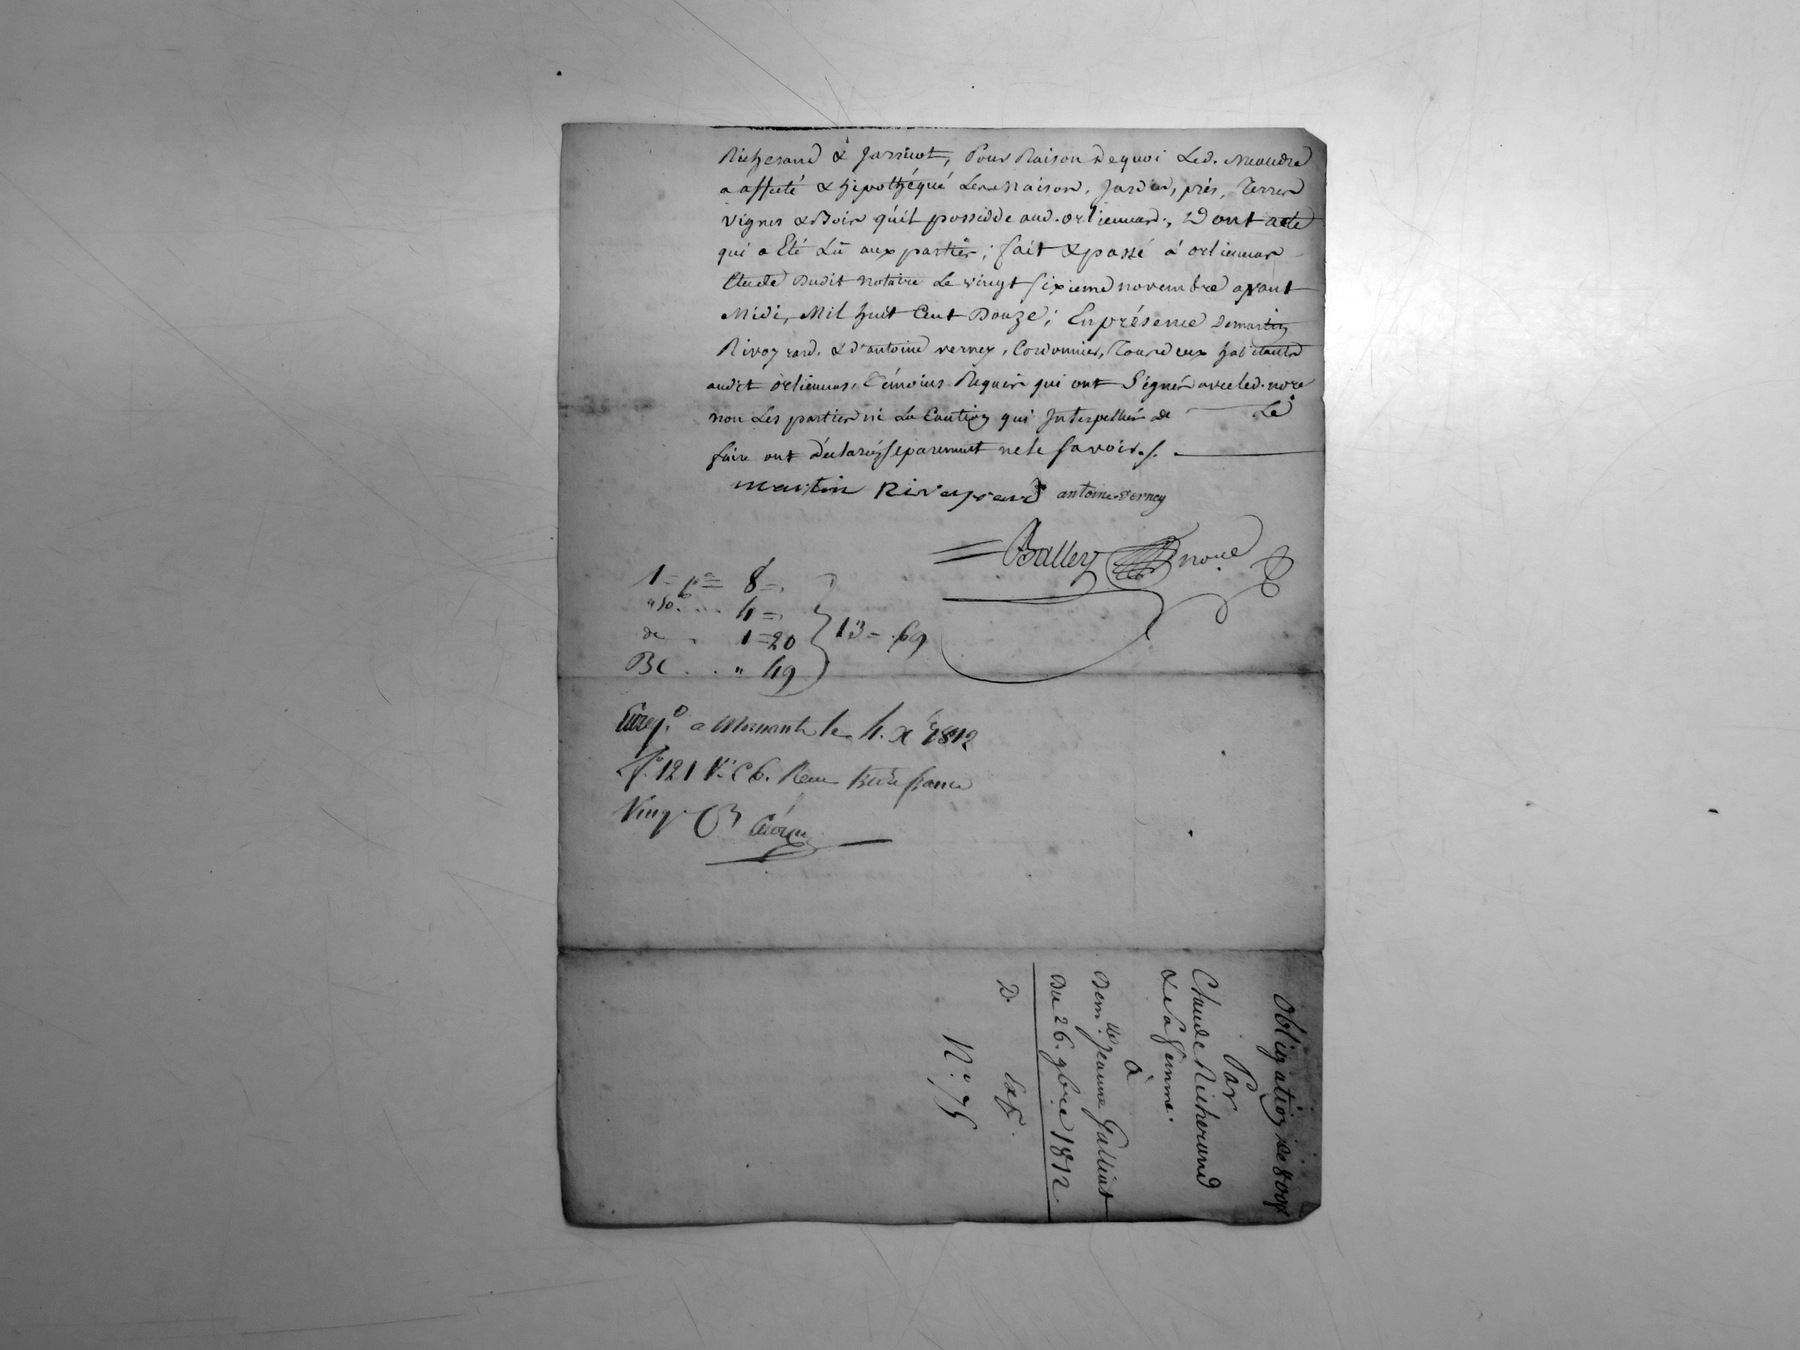 Richerand & Jarricot, Pour Raison dequoi Led. Maudre
a affecté & hipothéqué Les maison, Jardin, prés, Terres
Vignes & Bois qu'il possedde aud. orlienard., Dont acte
qui a Eté Lu aux parties; fait & passé à orlienas
Etude Dudit notaire Le vingt sixieme novembre avant
Midi, Mil huit Cent Douze; En présence demartin
Rivoyrard, & d'antoine verney, Cordonnier, Tous deux habitants
audit orlienas, Témoins Requis qui ont Signé avec led. nore
non Les parties ni La Caution qui Interpellés de Le
faire ont déclarés séparement ne le savoir./.
martin Rivoyrard antoine verney
Balley nore
1 = 8 =
4 =
de 1 = 20
13 = 69
BC . . " 49
Enreg.é a Mornant le 4. Xbre 1812
f.° 121 V.° C 6. Recu francs
Vingt
Obligation de 800f
Par
Claude Richerand
& Sa femme.
à
Dem.lle Jeanne Galliat
Du 26. 9bre 1812.
D. Exp.
N.° 75